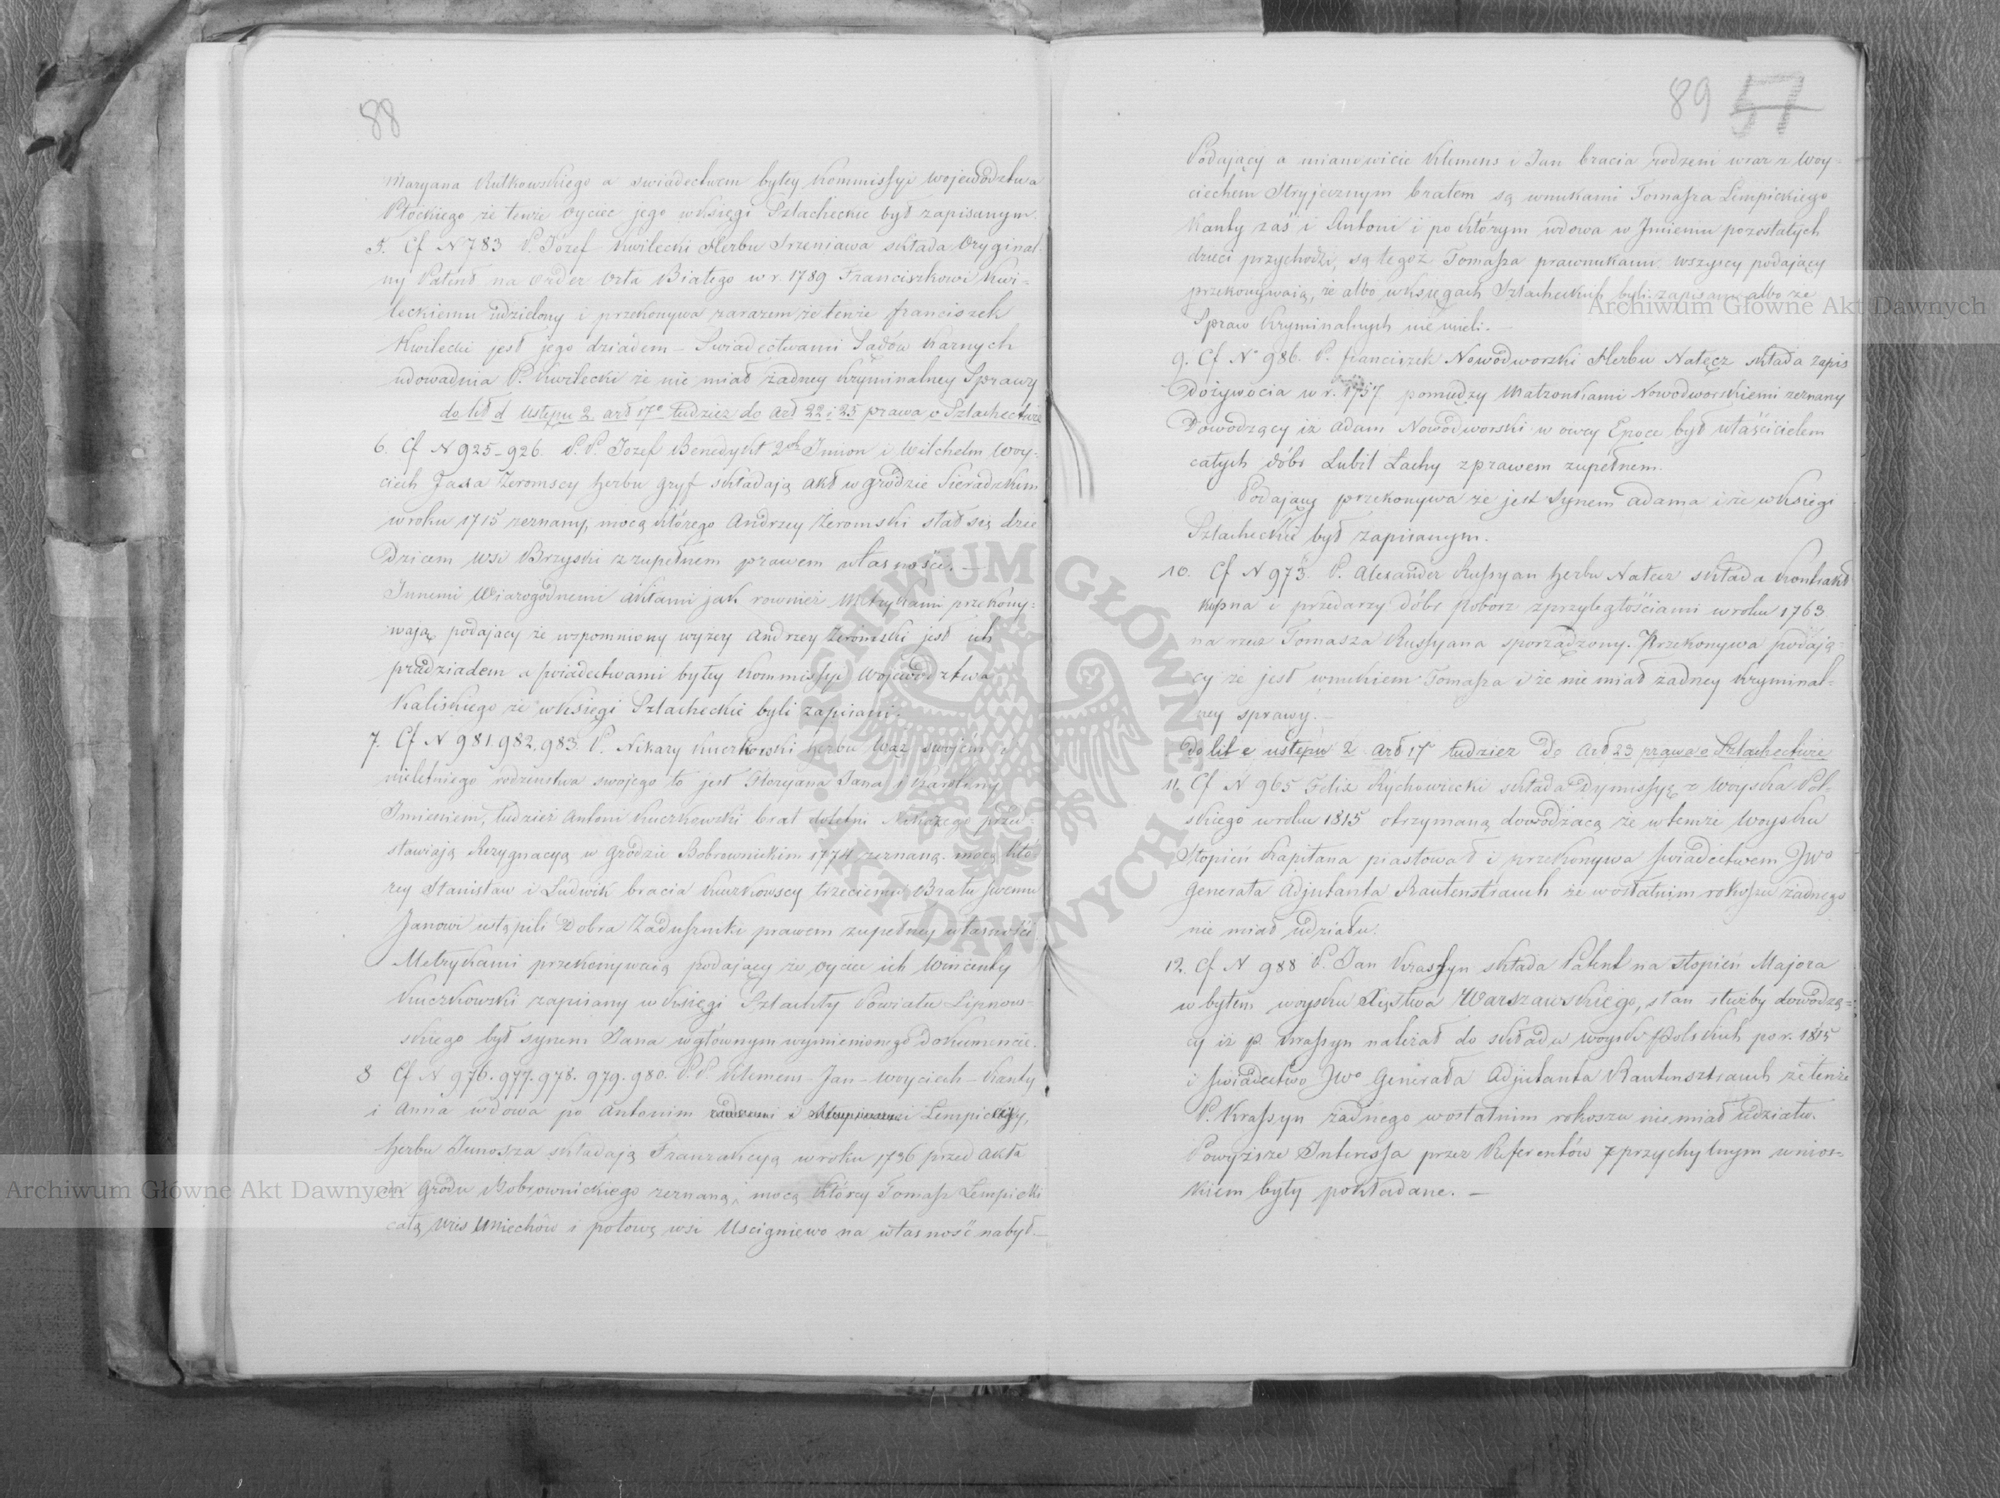 88
Maryana Rutkowskiego a swiadectwem byłey Kommissyi Województwa
Płockiego że tenże Oyciec jego w księgi Szlacheckie był zapisanym.
5. Cf N 783 P. Jozef Kwilecki Herbu Srzeniawa składa Oryginal-
ny Patent na Order Orła Białego w r. 1789 Franciszkowi Kwi-
leckiemu udzielony i przekonywa zarazem że tenże Franciszek
Kwilecki jest jego dziadem – Swiadectwami Sądów Karnych
udowadnia P. Kwilecki że nie miał żadney Kryminalney Sprawy
do lit d Ustępu 2 art 17o tudzież do Art 22 i 25 prawa o Szlachectwie
6. Cf N 925–926. P.P. Jozef Benedykt 2ch Imion i Wilchelm Woy-
ciech Żeromscy herbu Gryf składają Akt w grodzie Sieradzkim
w roku 1715 zeznany, mocą którego Andrzey Żeromski stał się dzie
dzicem wsi Brzyski z zupełnem prawem własności. –
Innemi Wiarogodnemi aktami jak rownież Metrykami przekony-
wają podający że wspomniony wyżey Andrzey Żeromski jest ich
pradziadem a swiadectwami byłey Kommissyi Województwa
Kaliskiego że w Księgi Szlacheckie byli zapisani.
7. Cf N 981. 982. 983. P. Nikazy Kuczkowski herbu Wąż swojém i
nieletniego rodzenstwa swojego to jest Floryana Jana i Karoliny
Imieniem, tudzież Antoni Kuczkowski brat doletni Nikazego przed-
stawiają Rezygnacyą w Grodzie Bobrownickim 1774 zeznaną. mocą któ-
rey Stanisław i Ludwik bracia Kuczkowscy trzeciemu Bratu swemu
Janowi ustąpili Dobra Zaduszniki prawem zupełney własności
Metrykami przekonywają podający że oyciec ich Wincenty
Kuczkowski zapisany w Księgi Szlachty Powiatu Lipnow-
skiego był synem Jana w głównym wymienionego dokumencie.
8 Cf N 976. 977. 978. 979. 980. P.P. Klemens – Jan – Woyciech – Kanty
i Anna wdowa po Antonim Lempiccy,
herbu Junosza składają Tranzakcyą w roku 1736 przed Akta
mi Grodu Bobrownickiego zeznaną, mocą którey Tomasz Lempicki
całą wieś Uniechów i połowę wsi Uscigniewo na własność nabył –
89 57
Podający a mianowicie Klemens i Jan bracia rodzeni wraz z Woy-
ciechem Stryjecznym bratem są wnukami Tomasza Lempickiego
Kanty zaś i Antoni i po którym wdowa w Imieniu pozostałych
dzieci przychodzi, są tegoż Tomasza prawnukami. wszyscy podający
przekonywaią, że albo w Księgach Szlacheckich byli zapisani albo że
Spraw Kryminalnych nie mieli. –
9. Cf N 986. P. Franciszek Nowodworski Herbu Nałęcz składa zapis
Dożywocia w r. 1757 pomiędzy Małżonkami Nowodworskiemi zeznany
Dowodzący iż Adam Nowodworski w owey Epoce był właścicielem
całych dóbr Lubit Łachy z prawem zupełnem.
Podający przekonywa że jest Synem Adama i że w Księgi
Szlacheckie był zapisanym.
10. Cf N 973. P. Alexander Russyan herbu Nałęcz składa Kontrakt
kupna i przedarzy dóbr Pobórz z przyległościami w roku 1763
na rzecz Tomasza Russyana sporządzony. Przekonywa podają-
cy że jest wnukiem Tomasza i że nie miał żadney Kryminal-
ney sprawy. –
Do lit e ustępu 2 Art 17o tudzież Do Art 23 prawa o Szlachectwie
11. Cf N 965 Felix Rychowiecki składa Dymissyę z Woyska Pol-
skiego w roku 1815 otrzymaną dowodzącą że w temże Woysku
Stopień Kapitana piastował i przekonywa swiadectwem JWo
Generała Adjutanta Rautenstrauch że w ostatnim rokoszu żadnego
nie miał udziału.
12. Cf N 988 P. Jan Krassyn składa Patent na stopień Majora
w byłem woysku Xięstwa Warszawskiego, stan służby dowodzą-
cy iż P. Krassyn należał do składu woysk Polskich po r. 1815
i swiadectwo JWo Generała Adjutanta Rautensztrauch że tenże
P. Krassyn żadnego w ostatnim rokoszu nie miał udziału.
Powyższe Interessa przez Referentów z przychylnym wnios-
kiem były pokładane. –
ARCHIWUM GŁÓWNE AKT DAWNYCH
Archiwum Główne Akt Dawnych
Archiwum Główne Akt Dawnych